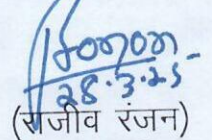 28.3.25
(राजीव रंजन)